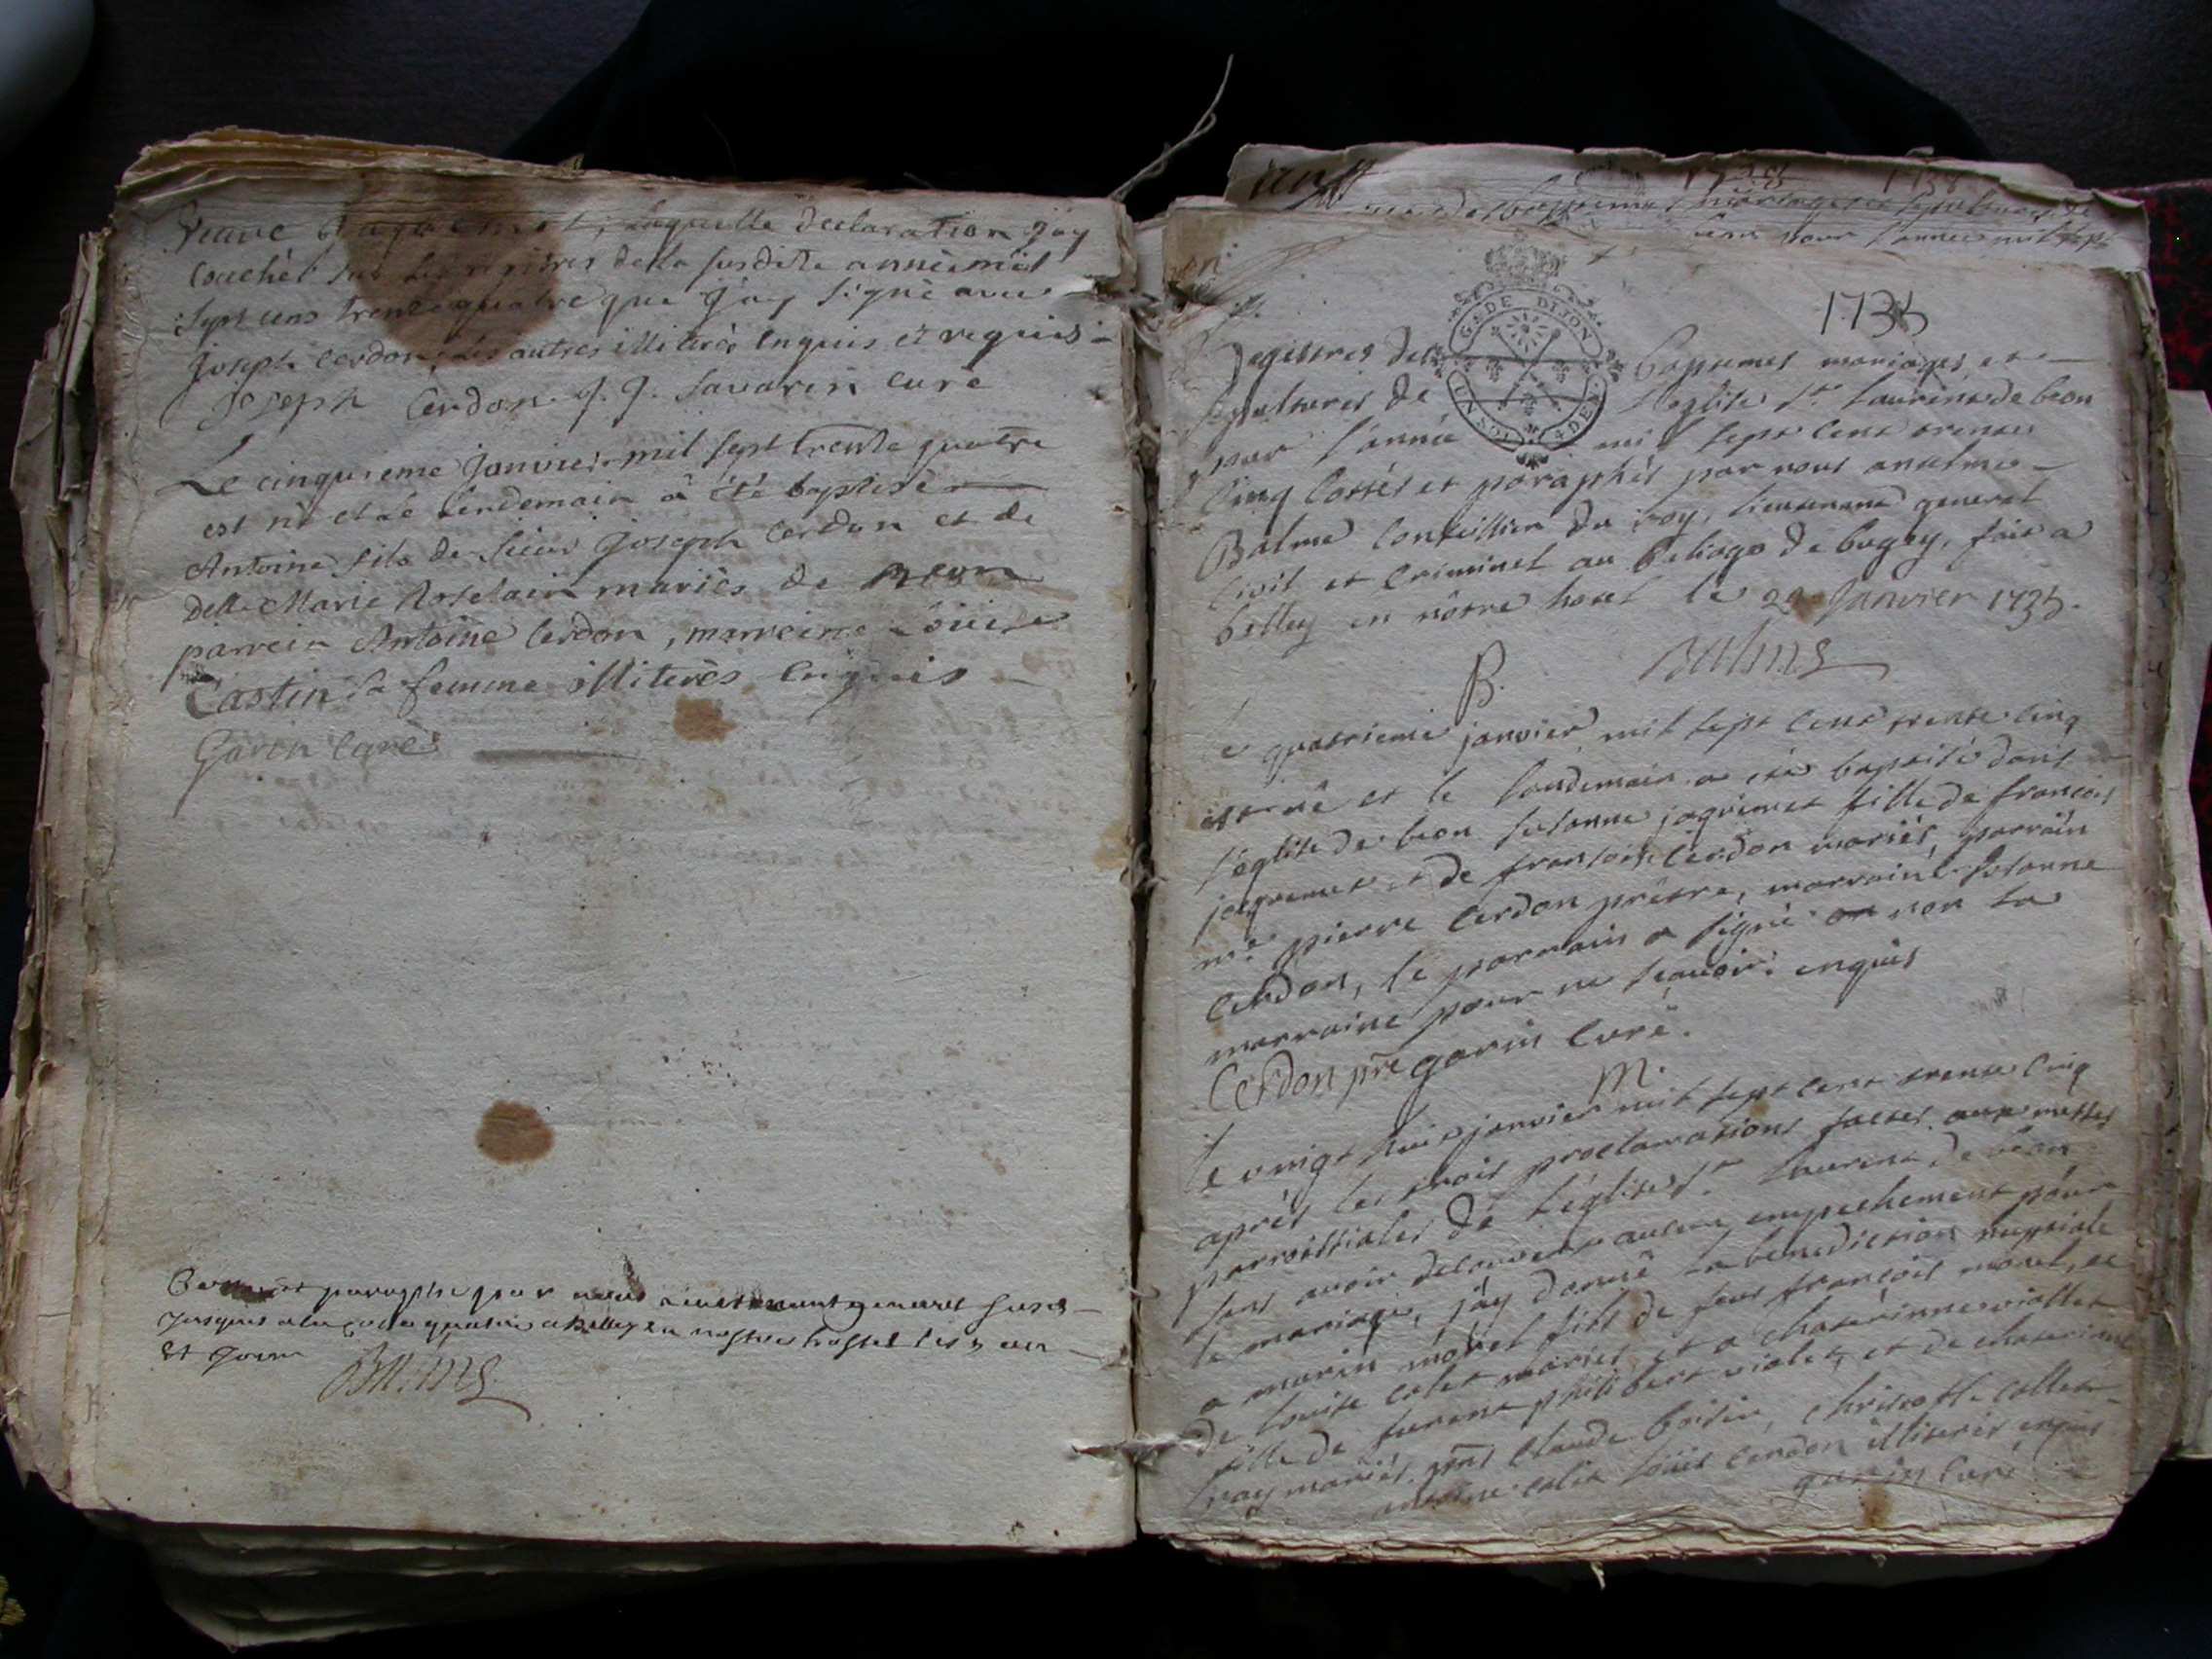 veuve Jaquemet, laquelle declaration j'ay
couchèe sur les registres de la susdite annèe mil
sept cens trente quatre que j'ay signè avec
joseph cerdon, les autres illiterès enquis et requis
Joseph Cerdon. J. J. Savarin curè
Le cinquieme Janvier mil sept trente quatre
est nè et le lendemain à étè baptisè
Antoine fils de sieur Joseph Cerdon et de
delle Marie Rosselain mariès de Beon
parrein Antoine Cerdon, marreine Loüise
Castin sa femme illiterès enquis
Garin curè
et paraphe par nous lieutenant general susd
jusques a la cotte quatre a Belley en nostre hostel les an
et jour
Balme
1738 1738
baptemes mariages et sepultures de
beon pour l'annee mil sept
G. DE DIJON
UN SOL 4 DEN.
1735
Registres des baptemes mariages, et
sepultures de l'eglise St. Laurent de beon
pour l'année mil sept cent trente
cinq cottés et paraphés par nous anselme
Balme conseillier du roy, lieutenant general
civil et criminel au baliage de bugey, fait a
belley en nôtre hotel le 29 Janvier 1735.
Balme
B.
le quatrieme janvier mil sept cent trente cinq
est née et le landemain a été baptisée dans
l'église de beon susanne jaquemet fille de francois
jaquemet et de francoise Cerdon mariés, parrain
mre pierre Cerdon prêtre, marraine susanne
Cerdon, le parrain a signé on non la
marraine pour ne sçavoir enquis
Cerdon pre garin Curé.
M.
le vingt huit janvier mil sept cent trente cinq
après les trois proclamations faites aux messes
parroissiales de l'église St. Laurent de beon
sans avoir decouvert aucun empechement pour
le mariage, j'ay donné la benediction nuptiale
a marin moret fils de feu françois moret, et
de louise colet mariés, et a chaterinne viollet
fille de furent philibert violet, et de chaterine
ray mariés. pnt Claude boisin, christophle collet
antoine colet loüis Cerdon illiterés enquis
garin Curé